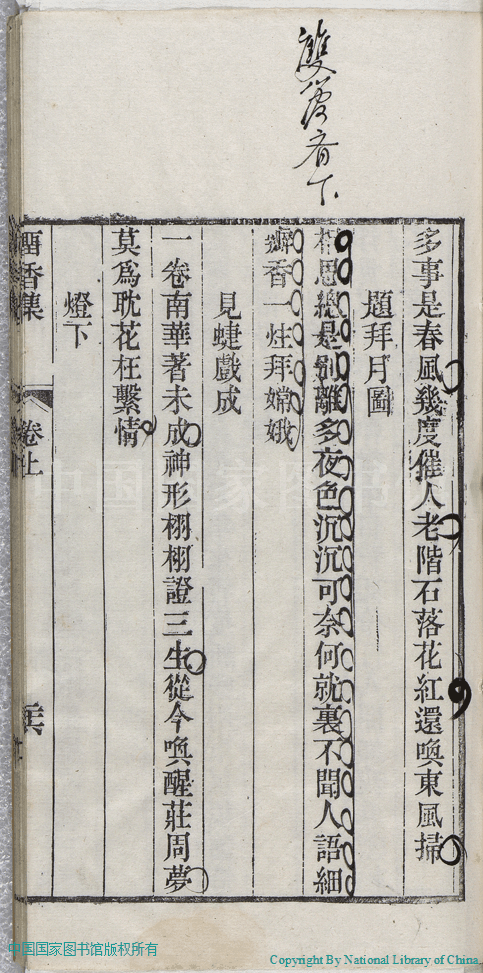 雙管齊下
多事是春風幾度催人老階石落花紅還喚東風掃
題拜月圖
相思總是別離多夜色沉沉可奈何就裏不聞人語細
瓣香一炷拜嫦娥
見蜨戲成
一卷南華著未成神形栩栩證三生從今喚醒莊周夢
莫爲耽花枉繫情
燈下
酉香集
卷上
中国国家图书馆
中国国家图书馆版权所有
Copyright By National Library of China